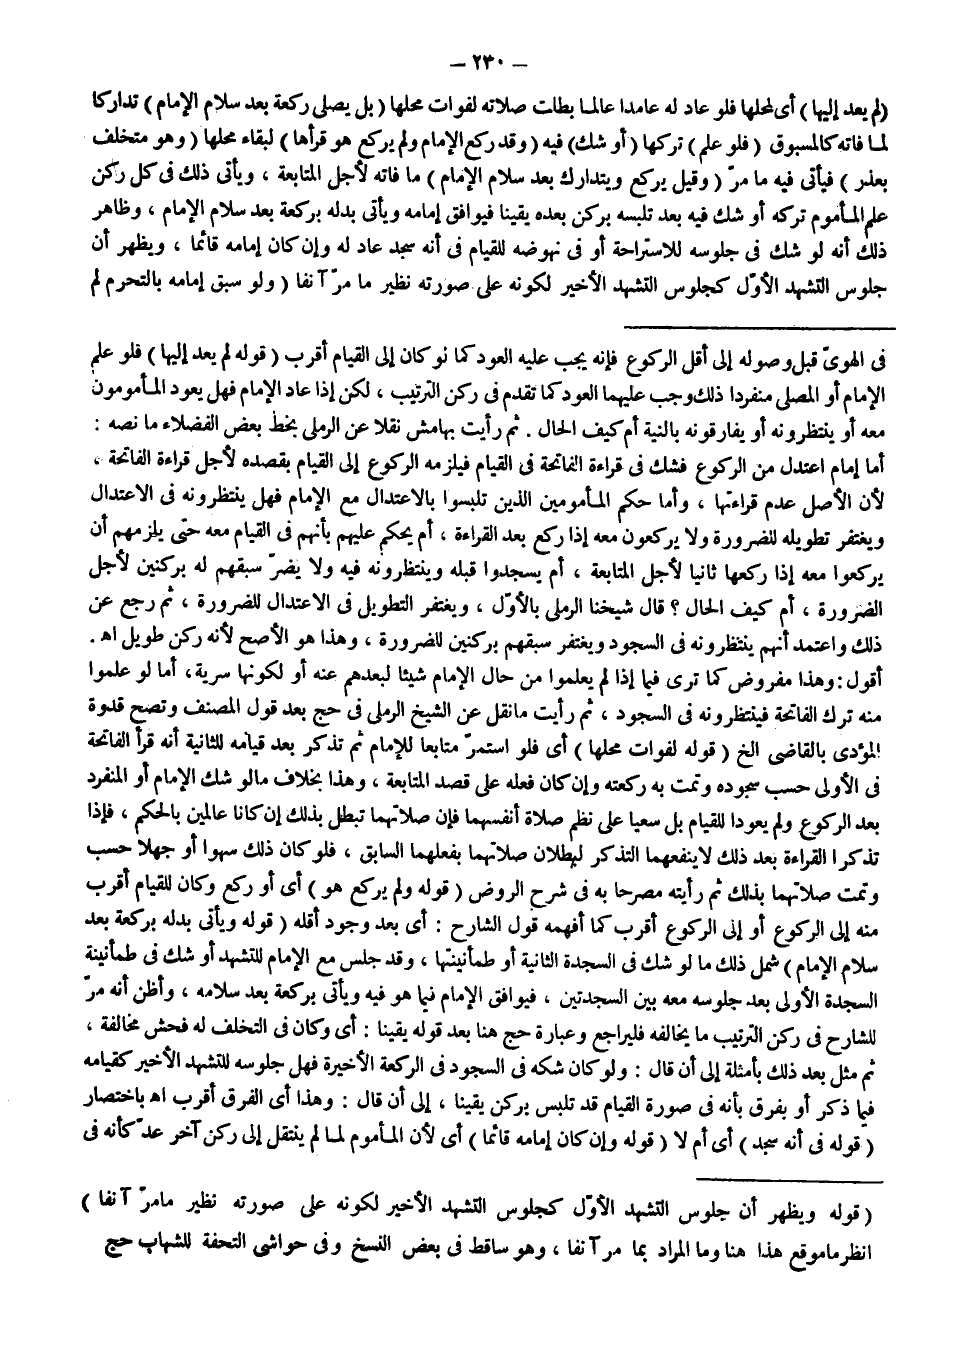 — ٢٣٠ —
(لم يعد إليها) أى لمحلها فلو عاد له عامدا عالما بطلت صلاته لفوات محلها (بل يصلى ركعة بعد سلام الإمام) تداركا
لما فاته كالمسبوق (فلو علم) تركها (أو شك) فيه (وقد ركع الإمام ولم يركع هو قرأها) لبقاء محلها (وهو متخلف
بعذر) فيأتى فيه ما مرّ (وقيل يركع ويتدارك بعد سلام الإمام) ما فاته لأجل المتابعة ، ويأتى ذلك فى كل ركن
علم المأموم تركه أو شك فيه بعد تلبسه بركن بعده يقينا فيوافق إمامه ويأتى بدله بركعة بعد سلام الإمام ، وظاهر
ذلك أنه لو شك فى جلوسه للاستراحة أو فى نهوضه للقيام فى أنه سجد عاد له وإن كان إمامه قائما ، ويظهر أن
جلوس التشهد الأوّل كجلوس التشهد الأخير لكونه على صورته نظير ما مرّ آنفا (ولو سبق إمامه بالتحرم لم
فى الهوىّ قبل وصوله إلى أقل الركوع فإنه يجب عليه العود كما نو كان إلى القيام أقرب (قوله لم يعد إليها) فلو علم
الإمام أو المصلى منفردا ذلك وجب عليهما العود كما تقدم فى ركن الترتيب ، لكن إذا عاد الإمام فهل يعود المأمومون
معه أو ينتظرونه أو يفارقونه بالنية أم كيف الحال . ثم رأيت بهامش نقلا عن الرملى بخط بعض الفضلاء ما نصه :
أما إمام اعتدل من الركوع فشك فى قراءة الفاتحة فى القيام فيلزمه الركوع إلى القيام بقصده لأجل قراءة الفاتحة ،
لأن الأصل عدم قراءتها ، وأما حكم المأمومين الذين تلبسوا بالاعتدال مع الإمام فهل ينتظرونه فى الاعتدال
ويغتفر تطويله للضرورة ولا يركعون معه إذا ركع بعد القراءة ، أم يحكم عليهم بأنهم فى القيام معه حتى يلزمهم أن
يركعوا معه إذا ركعها ثانيا لأجل المتابعة ، أم يسجدوا قبله وينتظرونه فيه ولا يضرّ سبقهم له بركنين لأجل
الضرورة ، أم كيف الحال ؟ قال شيخنا الرملى بالأوّل ، ويغتفر التطويل فى الاعتدال للضرورة ، ثم رجع عن
ذلك واعتمد أنهم ينتظرونه فى السجود ويغتفر سبقهم بركنين للضرورة ، وهذا هو الأصح لأنه ركن طويل اه .
أقول : وهذا مفروض كما ترى فيما إذا لم يعلموا من حال الإمام شيئا لبعدهم عنه أو لكونها سرية ، أما لو علموا
منه ترك الفاتحة فينتظرونه فى السجود ، ثم رأيت ما نقل عن الشيخ الرملى فى حج بعد قول المصنف وتصح قدوة
المؤدى بالقاضى الخ (قوله لفوات محلها) أى فلو استمرّ متابعا للإمام ثم تذكر بعد قيامه للثانية أنه قرأ الفاتحة
فى الأولى حسب سجوده وتمت به ركعته وإن كان فعله على قصد المتابعة ، وهذا بخلاف ما لو شك الإمام أو المنفرد
بعد الركوع ولم يعودا للقيام بل سعيا على نظم صلاة أنفسهما فإن صلاتهما تبطل بذلك إن كانا عالمين بالحكم ، فإذا
تذكرا القراءة بعد ذلك لا ينفعهما التذكر لبطلان صلاتهما بفعلهما السابق ، فلو كان ذلك سهوا أو جهلا حسب
وتمت صلاتهما بذلك ثم رأيته مصرحا به فى شرح الروض (قوله ولم يركع هو) أى أو ركع وكان للقيام أقرب
منه إلى الركوع أو إلى الركوع أقرب كما أفهمه قول الشارح : أى بعد وجود أقله (قوله ويأتى بدله بركعة بعد
سلام الإمام) شمل ذلك ما لو شك فى السجدة الثانية أو طمأنينتها ، وقد جلس مع الإمام للتشهد أو شك فى طمأنينة
السجدة الأولى بعد جلوسه معه بين السجدتين ، فيوافق الإمام فيما هو فيه ويأتى بركعة بعد سلامه ، وأظن أنه مرّ
للشارح فى ركن الترتيب ما يخالفه فليراجع وعبارة حج هنا بعد قوله يقينا : أى وكان فى التخلف له فحش مخالفة ،
ثم مثل بعد ذلك بأمثلة إلى أن قال : ولو كان شكه فى السجود فى الركعة الأخيرة فهل جلوسه للتشهد الأخير كقيامه
فيما ذكر أو يفرق بأنه فى صورة القيام قد تلبس بركن يقينا ، إلى أن قال : وهذا أى الفرق أقرب اه باختصار
(قوله فى أنه سجد) أى أم لا (قوله وإن كان إمامه قائما) أى لأن المأموم لما لم ينتقل إلى ركن آخر عدّ كأنه فى
(قوله ويظهر أن جلوس التشهد الأوّل كجلوس التشهد الأخير لكونه على صورته نظير مامرّ آنفا)
انظر ماموقع هذا هنا وما المراد بما مر آنفا ، وهو ساقط فى بعض النسخ وفى حواشى التحفة للشهاب حج